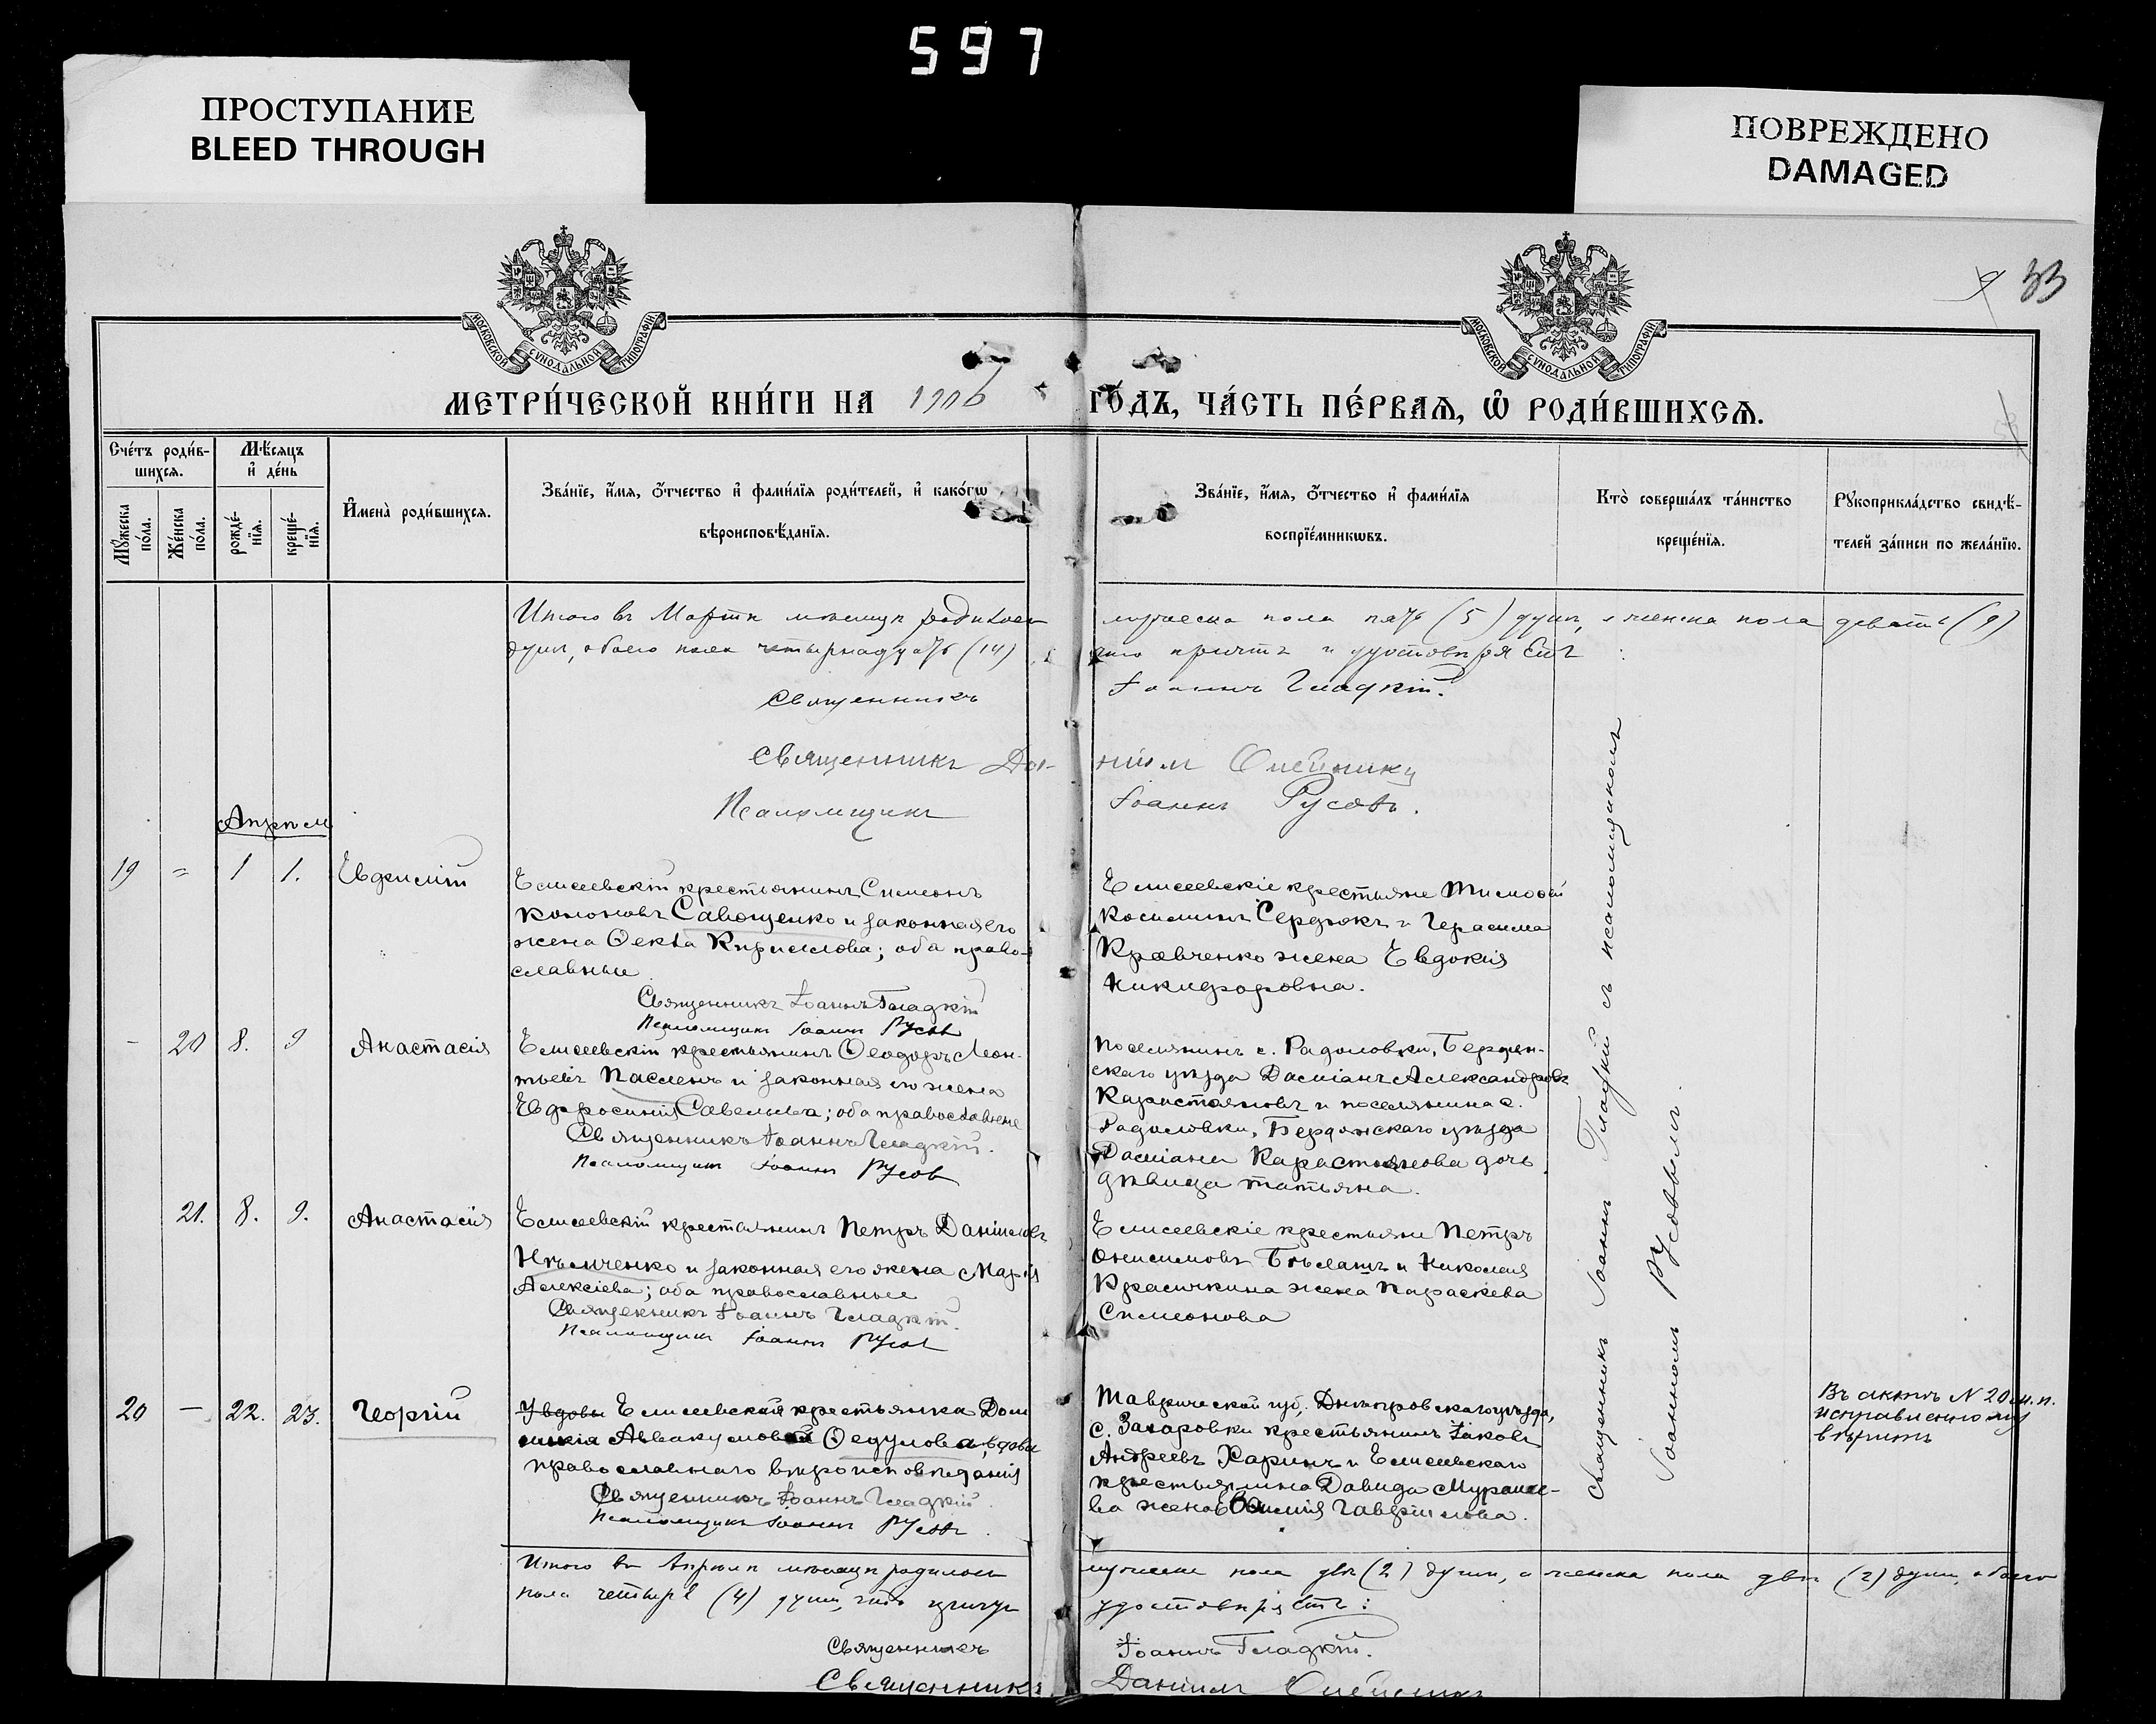 597
ПРОСТУПАНИЕ
BLEED THROUGH
ПОВРЕЖДЕНО
DAMAGED
33
МОСКОВСКОЙ СѴНОДАЛЬНОЙ ТИПОГРАФІИ
МОСКОВСКОЙ СѴНОДАЛЬНОЙ ТИПОГРАФІИ
МЕТРИ́ЧЕСКОЙ КНИ́ГИ НА 1906 ГО́ДЪ, ЧА́СТЬ ПЕ́РВАѦ, Ѡ҆ РОДИ́ВШИХСѦ.
Сче́тъ роди́в-
шихсѧ.
Мѣ́сѧцъ
и҆ де́нь
Мꙋ́жеска
по́ла.
Же́нска
по́ла.
рожде́-
нїѧ.
креще́-
нїѧ.
И҆мена̀ роди́вшихсѧ.
Зва́нїе, и҆́мѧ, ѻ҆́тчество и҆ фами́лїѧ роди́телей, и҆ како́гѡ
вѣроисповѣ́данїѧ.
Зва́нїе, и҆́мѧ, ѻ҆́тчество и҆ фами́лїѧ
воспрїе́мникѡвъ.
Кто̀ соверша́лъ та́инство
креще́нїѧ.
Рꙋкоприкла́дство свидѣ́-
телей за́писи по жела́нїю.
Итого въ Мартѣ мѣсяцѣ родилось мужеска пола пять (5) душъ, а женска пола девять (9)
душъ, обоего пола четырнадцать (14) причтъ и удостовѣряетъ:
Священникъ Іоаннъ Гладкій.
Священникъ Даніилъ Олейникъ
Псаломщикъ Іоаннъ Русовъ.
Апрѣль
19 = 1 1. Евфимій
Елисеевскій крестьянинъ Симеонъ
Кононовъ Савощенко и законная его
жена Ѳекла Кириллова; оба право-
славные
Священникъ Іоаннъ Гладкій
Псаломщикъ Іоаннъ Русовъ
Елисеевскіе крестьяне Тимоѳей
Сердюкъ и Герасима
Кравченко жена Евдокія
Никифоровна.
- 20 8. 9 Анастасія
Елисеевскій крестьянинъ Ѳеодоръ Леон-
тьевъ Пасленъ и законная его жена
Евфросинія Савельева; оба православные
Священникъ Іоаннъ Гладкій.
Псаломщикъ Іоаннъ Русовъ
Поселянинъ с. Радоловки, Бердян-
скаго уѣзда Даміанъ Александровъ
Карастояновъ и поселянина с.
Радоловки, Бердянскаго уѣзда
Даміана Карастоянова дочь
дѣвица Татьяна.
21. 8. 9. Анастасія
Елисеевскій крестьянинъ Петръ Даніиловъ
Нѣмченко и законная его жена Марія
Алексіева; оба православные
Священникъ Іоаннъ Гладкій.
Псаломщикъ Іоаннъ Русовъ
Елисеевскіе крестьяне Петръ
Онисимовъ и Николая
Красичкина жена Параскева
Симеонова
20 — 22. 23. Георгій
Елисеевская крестьянка Дом
никія Аввакумова Ѳедулова, вдова
православнаго вѣроисповѣданія
Священникъ Іоаннъ Гладкій
Псаломщикъ Іоаннъ Русовъ.
Таврической губ., Днѣпровскаго уѣзда,
с. Захаровки крестьянинъ Іаковъ
Андреевъ Харинъ и Елисеевскаго
крестьянина Давида
ва жена Гавріилова.
Въ актѣ N 20 м. п.
исправленному
вѣрить
Священникъ Іоаннъ Гладкій съ псаломщикомъ
Іоанномъ Русовымъ.
Итого въ Апрѣлѣ мѣсяцѣ родилось мужеска пола двѣ (2) души, а женска пола двѣ (2) души, обоего
пола четыре (4) души, что удостовѣряетъ:
Священникъ Іоаннъ Гладкій.
Священникъ Даніилъ Олейникъ